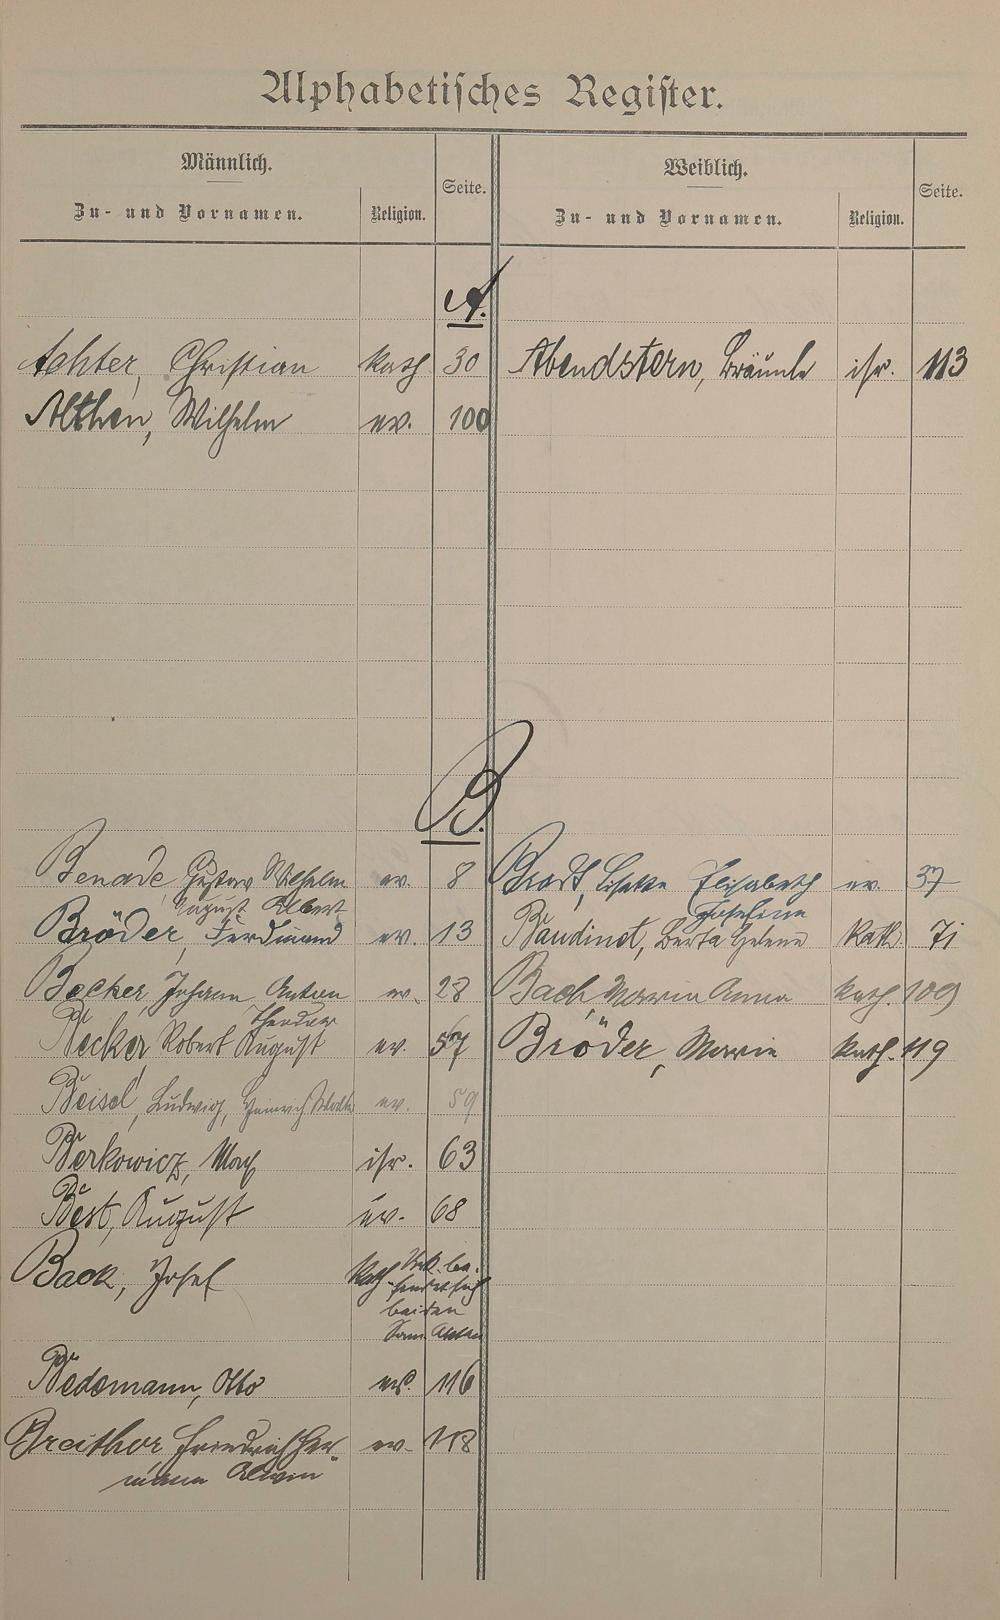 Alphabetisches Register.
Männlich.
Zu- und Vornamen.
Religion.
Seite.
Weiblich.
Zu- und Vornamen.
Religion.
Seite.
A.
Achter, Christian Kath 30
Abendstern, Bräunle isr. 113
Althen, Wilhelm ev. 100
B.
Benade, Gustav Wilhelm ev. 8
August Albert
Brodt, Lisette Elisabeth ev. 37
Josefine
Bröder, Ferdinand ev. 13
Baudinot, Berta Helene Kath. 71
Becker, Johann Anton ev. 28
Bach, Maria Anna Kath. 109
Theodor
Becker, Robert August ev. 57
Bröder, Marie Kath. 119
Beisel, Ludwig, Heinrich ev. 59
Berkowicz, Max isr. 63
Best, August ev. 68
Back, Josef Kath
befindet sich
bei den
Akten
Bedemann, Otto ev. 116
Breithor, Friedrich Her-
mann Alwin ev. 118